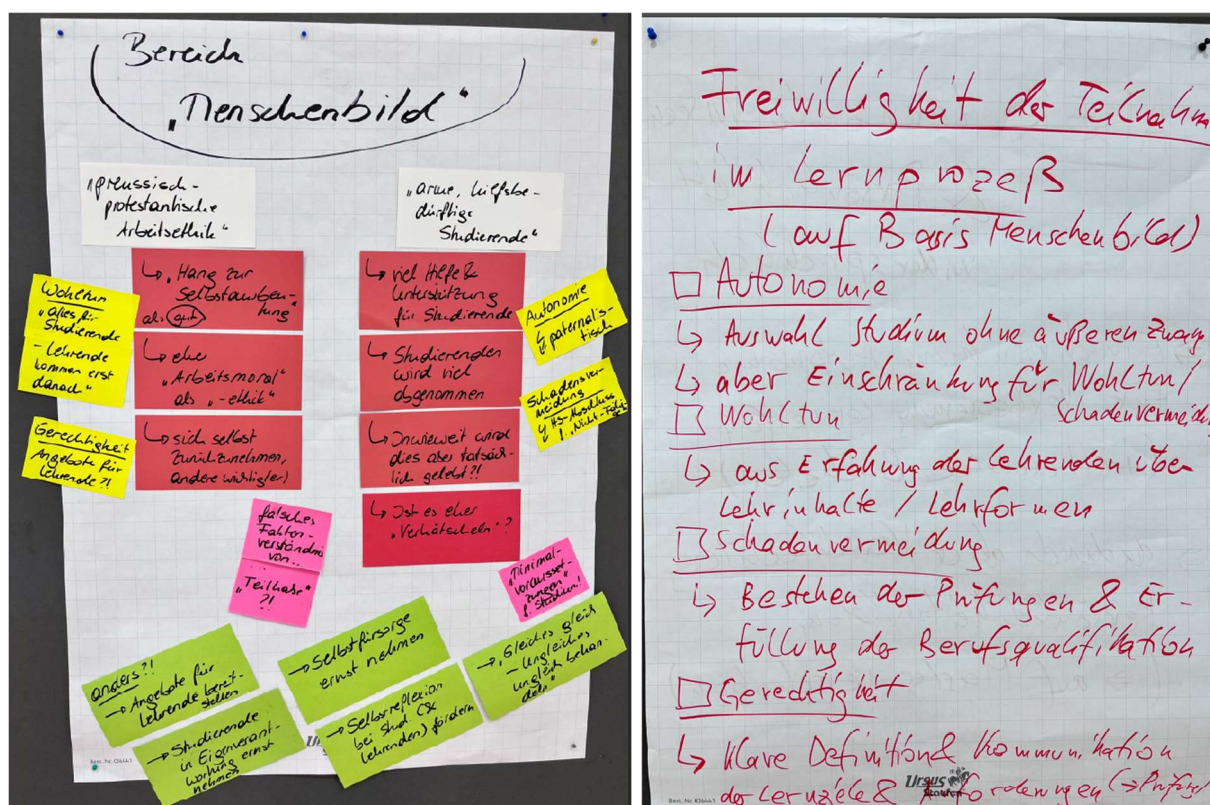 Bereich
"Menschenbild"
"preussisch-
protestantische
Arbeitsethik"
"arme, hilfsbe-
dürftige
Studierende"
Wohltun
"alles für
Studierende
- Lehrende
kommen erst
danach"
Gerechtigkeit
Angebote für
Lehrende?!
↳ "Hang zur
Selbstausbeu-
tung"
als gut
↳ eher
"Arbeitsmoral"
als "-ethik"
↳ sich selbst
zurückzunehmen,
andere wichtig(er)
↳ viel Hilfe &
Unterstützung
für Studierende
↳ Studierenden
wird viel
abgenommen
↳ Inwieweit wird
dies aber tatsäch-
lich gelebt?!
↳ Ist es eher
"Verhätscheln"?
Autonomie
↳ paternalis-
tisch
Schadensver-
meidung
↳ HS-Abschluss
falsches
Fakten-
verständnis
von..
"Teilhabe"
?!
"Minimal-
vorausset-
zungen"
f. Studium!
anders?!
→ Angebote für
Lehrende bereit-
stellen
→ Studierende
in Eigenverant-
wortung ernst
nehmen
→ Selbstfürsorge
ernst nehmen
→ Selbstreflexion
bei Stud. (&
Lehrenden) fördern
→ "Gleiches gleich
- Ungleiches
ungleich behan-
deln"
Freiwilligkeit der Teilnahm
im Lernprozeß
(auf Basis Menschenbild)
□ Autonomie
↳ Auswahl Studium ohne äußeren Zwang
↳ aber Einschränkung für Wohltun/
Schadenvermeidung
□ Wohltun
↳ aus Erfahrung der Lehrenden über
Lehrinhalte / Lehrformen
□ Schadenvermeidung
↳ Bestehen der Prüfungen & Er-
füllung der Berufsqualifikation
□ Gerechtigkeit
↳ Klare Definition & Kommunikation
der Lernziele & Anforderungen (→ Prüfung
Ursus